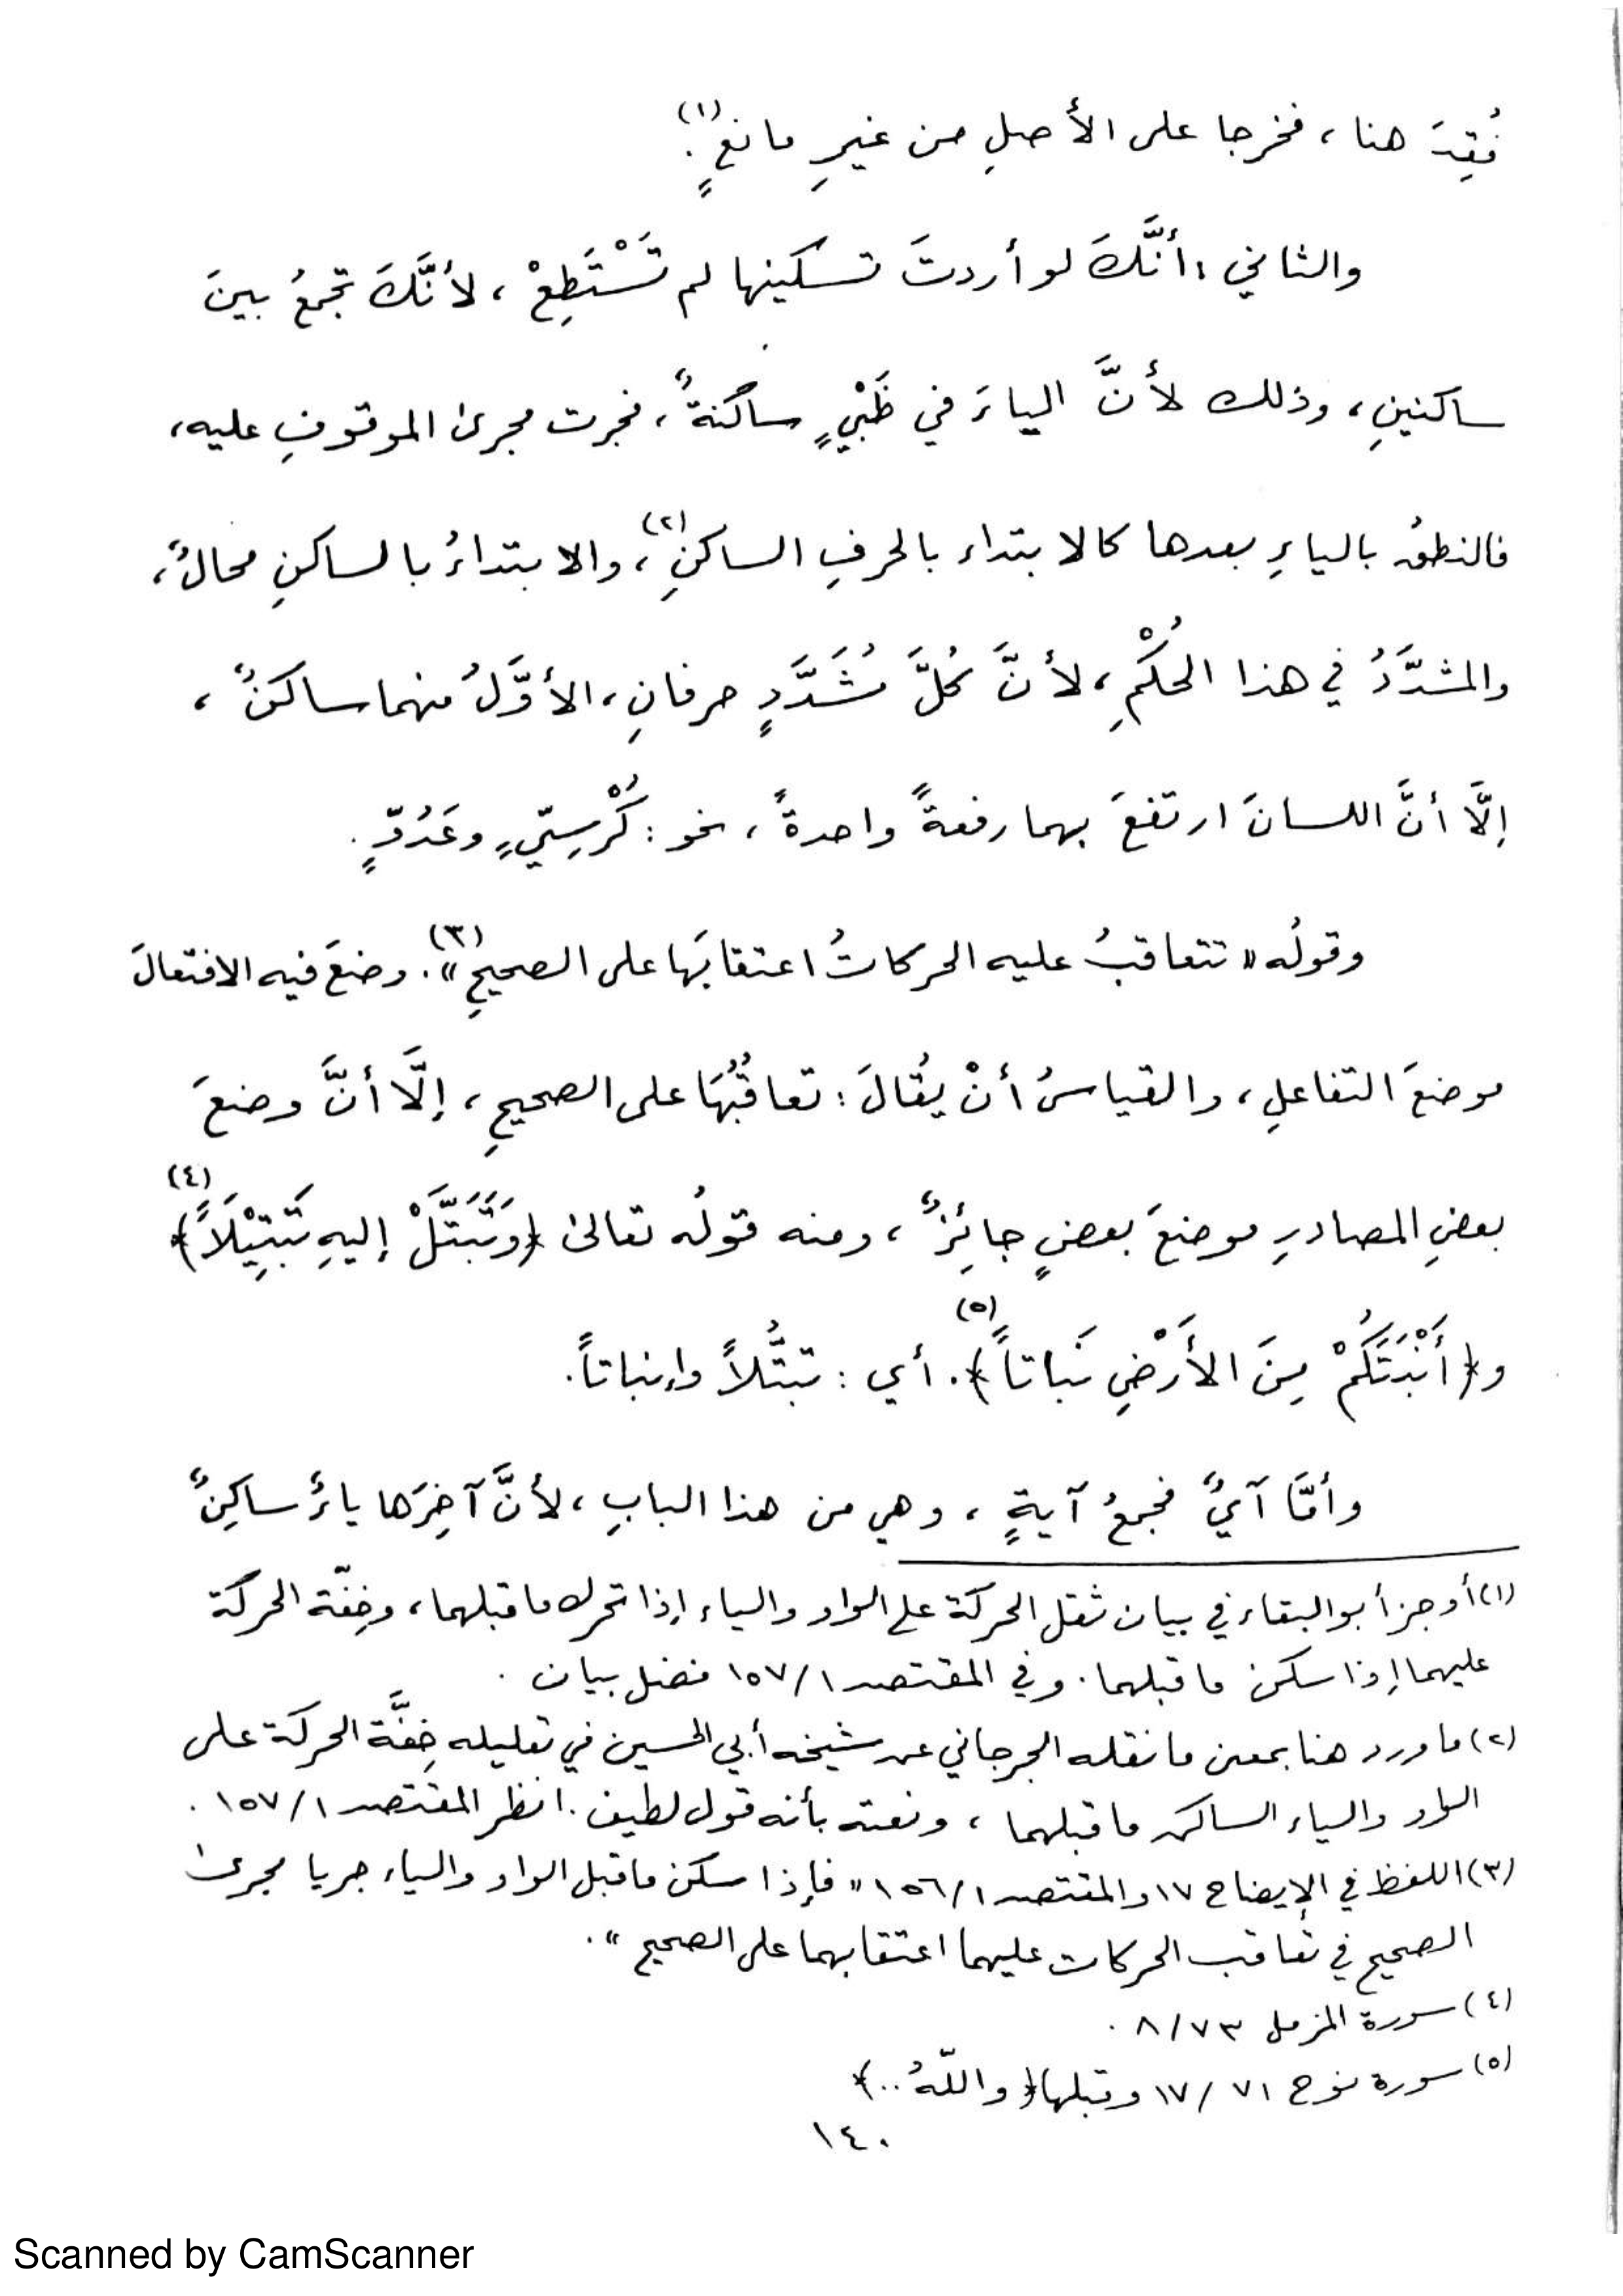 فُقِدَ هنا، فخرجا على الأصلِ من غيرِ مانعٍ(١).
والثاني: أنَّكَ لو أردتَ تسكينها لم تَسْتَطِعْ، لأنَّكَ تجمعُ بينَ
ساكنينِ، وذلك لأنَّ الياءَ في ظَبْيٍ ساكنةٌ، فجرت مجرىٰ الموقوفِ عليه،
فالنطقُ بالياءِ بعدها كالابتداء بالحرفِ الساكنِ(٢)، والابتداءُ بالساكنِ محالٌ،
والمشدَّدُ في هذا الحُكْمِ، لأنَّ كُلَّ مُشَدَّدٍ حرفانِ، الأوَّلُ منهما ساكنٌ،
إلَّا أنَّ اللسانَ ارتفعَ بهما رفعةً واحدةً، نحو: كُرْسِيٍّ وعَدُوٍّ.
وقولُه «تتعاقبُ عليه الحركاتُ اعتقابَها على الصحيحِ»(٣). وضعَ فيه الافتعالَ
موضعَ التفاعلِ، والقياسُ أنْ يُقالَ: تعاقُبُهَا على الصحيحِ، إلَّا أنَّ وضعَ
بعضِ المصادرِ موضعَ بعضٍ جائِزٌ، ومنه قولُه تعالىٰ ﴿وَتَبَتَّلْ إليهِ تَبْتِيْلَاً﴾(٤)
و﴿أَنْبَتَكُمْ مِنَ الأَرْضِ نَباتاً﴾(٥). أي: تبتُّلاً وإنباتاً.
وأمَّا آيٌ فجمعُ آيةٍ، وهي من هذا البابِ، لأنَّ آخِرَها ياءٌ ساكِنٌ
(١) أوجز أبو البقاء في بيان ثقل الحركة على الواو والياء إذا تحرك ما قبلهما، وخِفّة الحركة
عليهما إذا سكن ما قبلهما. وفي المقتصد ١/١٥٧ فضل بيان.
(٢) ما ورد هنا بمعنى ما نقله الجرجاني عن شيخه أبي الحسين في تعليله خِفَّة الحركة على
الواو والياء الساكن ما قبلهما، ونعته بأنه قول لطيف. انظر المقتصد ١/١٥٧.
(٣) اللفظ في الإيضاح ١٧ والمقتصد ١/١٥٦ «فإذا سكن ما قبل الواو والياء جريا مجرىٰ
الصحيح في تعاقب الحركات عليهما اعتقابهما على الصحيح».
(٤) سورة المزمل ٧٣/٨.
(٥) سورة نوح ٧١/١٧ وقبلها ﴿واللّهُ..﴾
١٤٠
Scanned by CamScanner